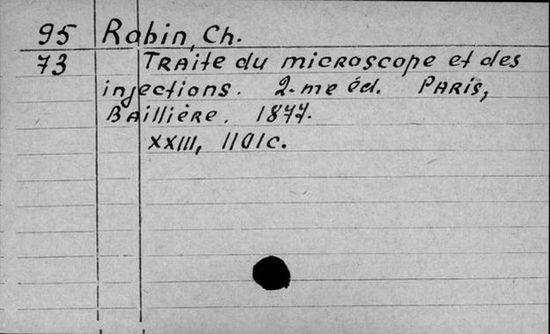 95 Robin, Ch.
73 Traite du microscope et des
injections. 2-me éd. Paris,
Baillière. 1877.
XXIII, 1101c.